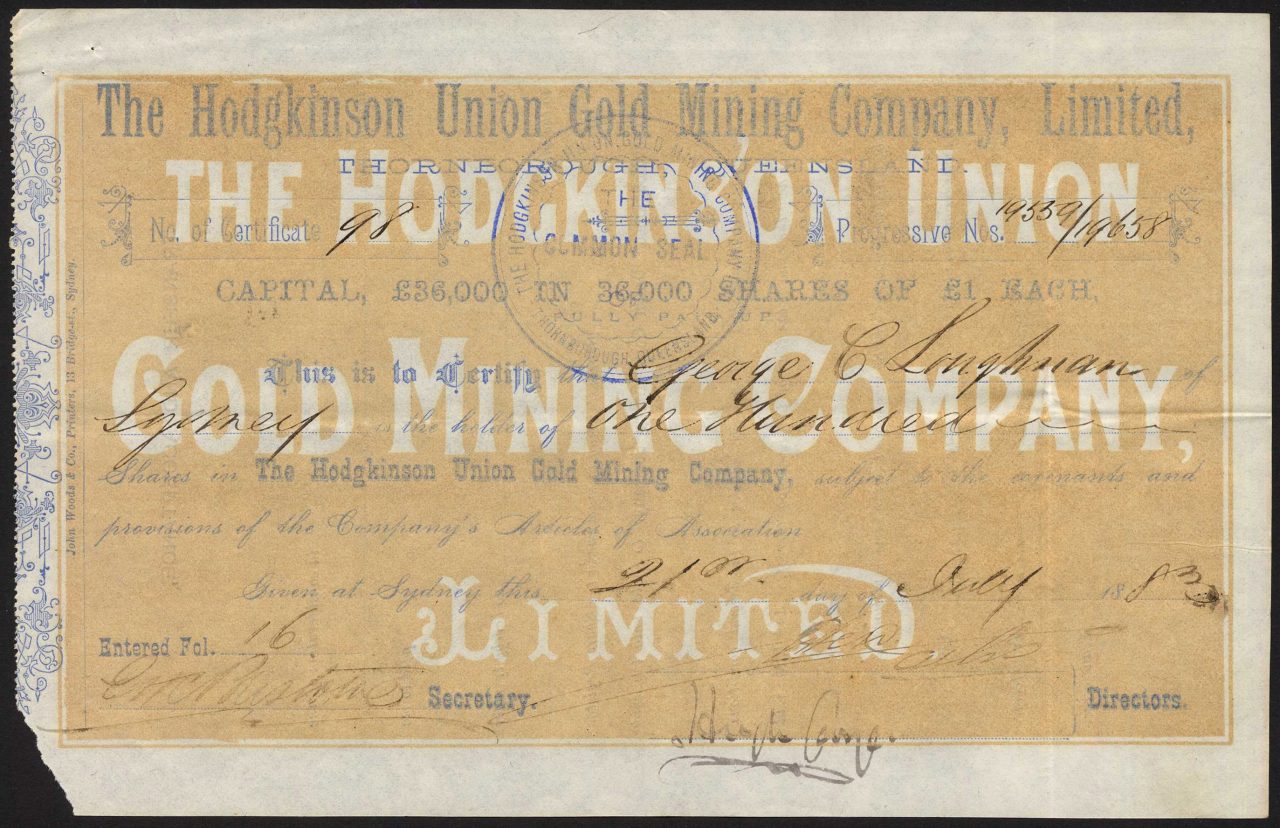 The Hodgkinson Union Gold Mining Company, Limited,
THORNBOROUGH, QUEENSLAND.
THE HODGKINSON UNION
No. of Certificate 98
Progressive Nos. 19559/19658
THE HODGKINSON UNION GOLD MINING COMPANY
THE
COMMON SEAL
THORNBOROUGH QUEENSLAND
CAPITAL, £36,000 IN 36,000 SHARES OF £1 EACH,
FULLY PAID UP
This is to Certify that George C Loughnan of
GOLD MINING COMPANY,
Sydney is the holder of One Hundred
Shares in The Hodgkinson Union Gold Mining Company, subject to the covenants and
provisions of the Company's Articles of Association
Given at Sydney this 21st day of July 1883
LIMITED
Entered Fol. 16
Secretary.
Directors.
John Woods & Co., Printers, 13 Bridge-st., Sydney.